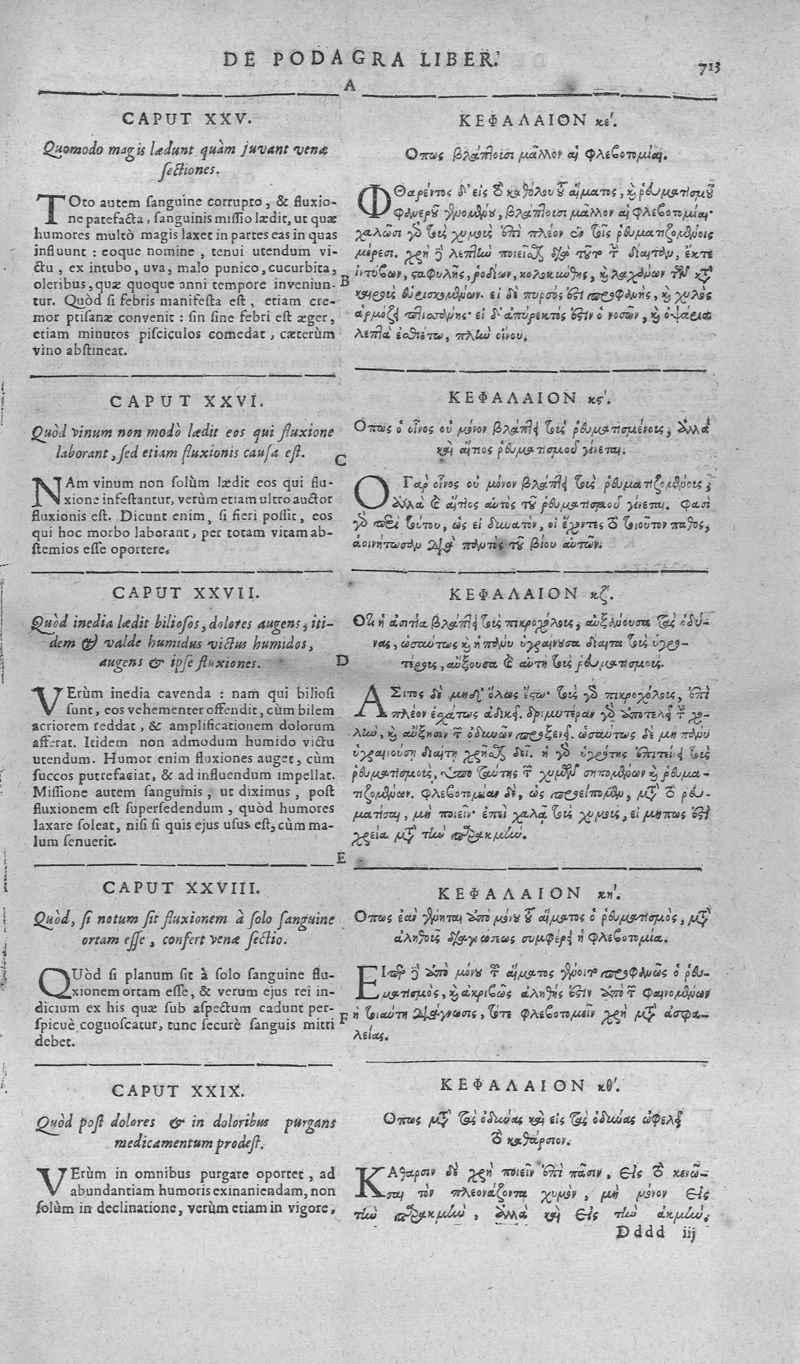 DE PODAGRA LIBER.
713
A
CAPUT XXV.
Quomodo magis lædunt quàm juvant venæ
ſectiones.
TOto autem ſanguine corrupto, & fluxio-
ne patefacta, ſanguinis miſſio lædit, ut quæ
humores multò magis laxet in partes eas in quas
influunt : eoque nomine, tenui utendum vi-
ctu, ex intubo, uva, malo punico, cucurbita,
oleribus, quæ quoque anni tempore inveniun-
tur. Quòd ſi febris manifeſta eſt, etiam cre-
mor ptiſanæ convenit : ſin ſine febri eſt æger,
etiam minutos piſciculos comedat, cæterùm
vino abſtineat.
B
CAPUT XXVI.
Quòd vinum non modò lædit eos qui fluxione
laborant, ſed etiam fluxionis cauſa eſt.
C
NAm vinum non ſolùm lædit eos qui flu-
xione infeſtantur, verùm etiam ultro auctor
fluxionis eſt. Dicunt enim, ſi fieri poſſit, eos
qui hoc morbo laborant, per totam vitam ab-
ſtemios eſſe oportere.
CAPUT XXVII.
Quòd inedia lædit bilioſos, dolores augens, iti-
dem & valde humidus victus humidos,
augens & ipſe fluxiones.
D
VErùm inedia cavenda : nam qui bilioſi
ſunt, eos vehementer offendit, cùm bilem
acriorem reddat, & amplificationem dolorum
afferat. Itidem non admodum humido victu
utendum. Humor enim fluxiones auget, cùm
ſuccos putrefaciat, & ad influendum impellat.
Miſſione autem ſanguinis, ut diximus, poſt
fluxionem eſt ſuperſedendum, quòd humores
laxare ſoleat, niſi ſi quis ejus uſus eſt, cùm ma-
lum ſenuerit.
E
CAPUT XXVIII.
Quòd, ſi notum ſit fluxionem à ſolo ſanguine
ortam eſſe, confert venæ ſectio.
QUòd ſi planum ſit à ſolo ſanguine flu-
xionem ortam eſſe, & verum ejus rei in-
dicium ex his quæ ſub aſpectum cadunt per-
ſpicuè cognoſcatur, tunc ſecurè ſanguis mitti
debet.
F
CAPUT XXIX.
Quòd poſt dolores & in doloribus purgans
medicamentum prodeſt.
VErùm in omnibus purgare oportet, ad
abundantiam humoris exinaniendam, non
ſolùm in declinatione, verùm etiam in vigore,
ΚΕΦΑΛΑΙΟΝ κε΄.
Οπως βλάπτουσι μᾶλλον αἱ φλεβοτομίαι.
ΦΘαρέντος δ' εἰς τὸ καθόλου τοῦ αἵματος, καὶ ῥευματισμοῦ
φανεροῦ γενομένου, βλάπτουσι μᾶλλον αἱ φλεβοτομίαι·
χαλῶσι γὰρ τοὺς χυμοὺς ἐπὶ πλέον ἐν τοῖς ῥευματιζομένοις
μέρεσι. χρὴ ἢ λεπτὴν ποιεῖσθαι διὰ τοῦτο τὴν δίαιταν, ἔκ τε
ἰντύβων, σταφυλῆς, ῥοδίων, κολοκύνθης, καὶ λαχάνων τῶν κατὰ
καιροὺς εὑρισκομένων. εἰ δὲ πυρετὸς ἐπὶ προφανής, καὶ χυλὸς
ἁρμόζει πτισάνης· εἰ δ' ἀπύρεκτος ἐστὶν ὁ νοσῶν, καὶ ὀψάρια
λεπτὰ ἐσθιέτω, πλὴν οἴνου.
ΚΕΦΑΛΑΙΟΝ κϛ΄.
Οπως ὁ οἶνος οὐ μόνον βλάπτει τοὺς ῥευματισμένους, ἀλλὰ
καὶ αἴτιος ῥευματισμοῦ γίνεται.
Ο Γὰρ οἶνος οὐ μόνον βλάπτει τοὺς ῥευματιζομένους,
ἀλλὰ καὶ αἴτιος αὐτὸς τοῦ ῥευματισμοῦ γίνεται. Φασὶ
γὰρ περὶ τούτου, ὡς εἰ δυνατὸν, οἱ ἔχοντες τὸ τοιοῦτον πάθος,
ἀοινήτωσαν διὰ παντὸς τοῦ βίου αὐτῶν.
ΚΕΦΑΛΑΙΟΝ κζ΄.
Οτι ἡ ἀσιτία βλάπτει τοὺς πικροχόλους, αὐξάνουσα τὰς ὀδύ-
νας, ὡσαύτως καὶ ἡ πάνυ ὑγραίνουσα δίαιτα τοὺς ὑγρο-
τέρους, αὔξουσα καὶ αὐτὴ τοὺς ῥευματισμούς.
ΑΣιτος δὲ μηδ' ὅλως ἔστω· τοὺς γὰρ πικροχόλους, ἐπὶ
πλέον ἐσχάτως ἀδικεῖ. δριμυτέραν γὰρ ἀποτελεῖ τὴν χο-
λὴν, καὶ αὔξησιν τῶν ὀδυνῶν προξενεῖ. ὡσαύτως δὲ μὴ πάνυ
ὑγραινούσῃ διαίτῃ χρῆσθαι δεῖ. ἡ γὰρ ὑγρότης ἐπιτείνει τοὺς
ῥευματισμοὺς, ὑπὸ ταύτης τῶν χυμῶν σηπομένων καὶ ῥευμα-
τιζομένων. φλεβοτομίαν δὲ, ὡς προείπομεν, μετὰ τὸ ῥευ-
ματίσαι, μὴ ποιεῖν· ἐπεὶ χαλᾷ τοὺς χυμοὺς, εἰ μήπως ἐπὶ
χρεία μετὰ τὴν παρακμήν.
ΚΕΦΑΛΑΙΟΝ κη΄.
Οπως ἐὰν γένηται ἀπὸ μόνου τοῦ αἵματος ὁ ῥευματισμὸς, μετὰ
ἀληθοῦς διαγνώσεως συμφέρει ἡ φλεβοτομία.
ΕΙπερ ἢ ἀπὸ μόνου τοῦ αἵματος γένοιτο προφανῶς ὁ ῥευ-
ματισμὸς, καὶ ἀκριβῶς ἀληθής ἐστιν ἀπὸ τῶν φαινομένων
ἡ τοιαύτη διάγνωσις, τότε φλεβοτομεῖν χρὴ μετὰ ἀσφα-
λείας.
ΚΕΦΑΛΑΙΟΝ κθ΄.
Οπως μετὰ τὰς ὀδύνας καὶ εἰς τὰς ὀδύνας ὠφελεῖ
τὸ καθάρσιον.
ΚΑθαρσιν δὲ χρὴ ποιεῖν ἐπὶ πᾶσιν, εἰς τὸ κενῶ-
σαι τὸν πλεονάζοντα χυμὸν, μὴ μόνον εἰς
τὴν παρακμὴν, ἀλλὰ καὶ εἰς τὴν ἀκμήν.
Dddd iij